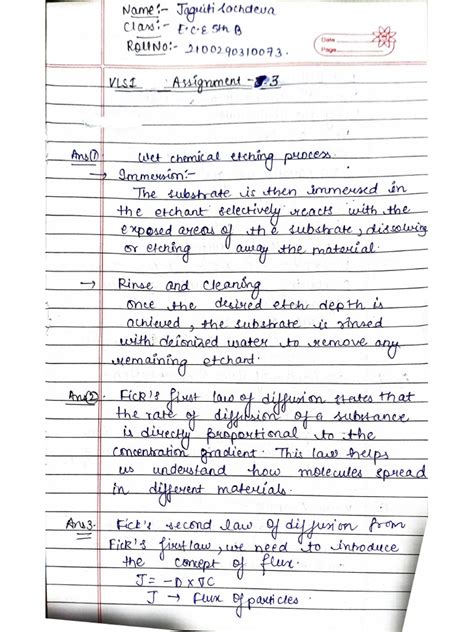 Name:- Jagriti Sachdeva
Class:- E.C.E 5th B
Roll No:- 2100290310073.
Date
Page
VLSI Assignment - 3
Ans(1) Wet chemical etching process
→ Immersion:-
The substrate is then immersed in
the etchant selectively reacts with the
exposed areas of the substrate, dissolving
or etching away the material.
→ Rinse and cleaning
once the desired etch depth is
achieved, the substrate is rinsed
with deionized water to remove any
remaining etchant.
Ans(2). Fick's first law of diffusion states that
the rate of diffusion of a substance
is directly proportional to the
concentration gradient. This law helps
us understand how molecules spread
in different materials.
Ans 3. Fick's second law of diffusion from
Fick's first law, we need to introduce
the concept of flux.
J = -D × ∇C
J → Flux of particles.